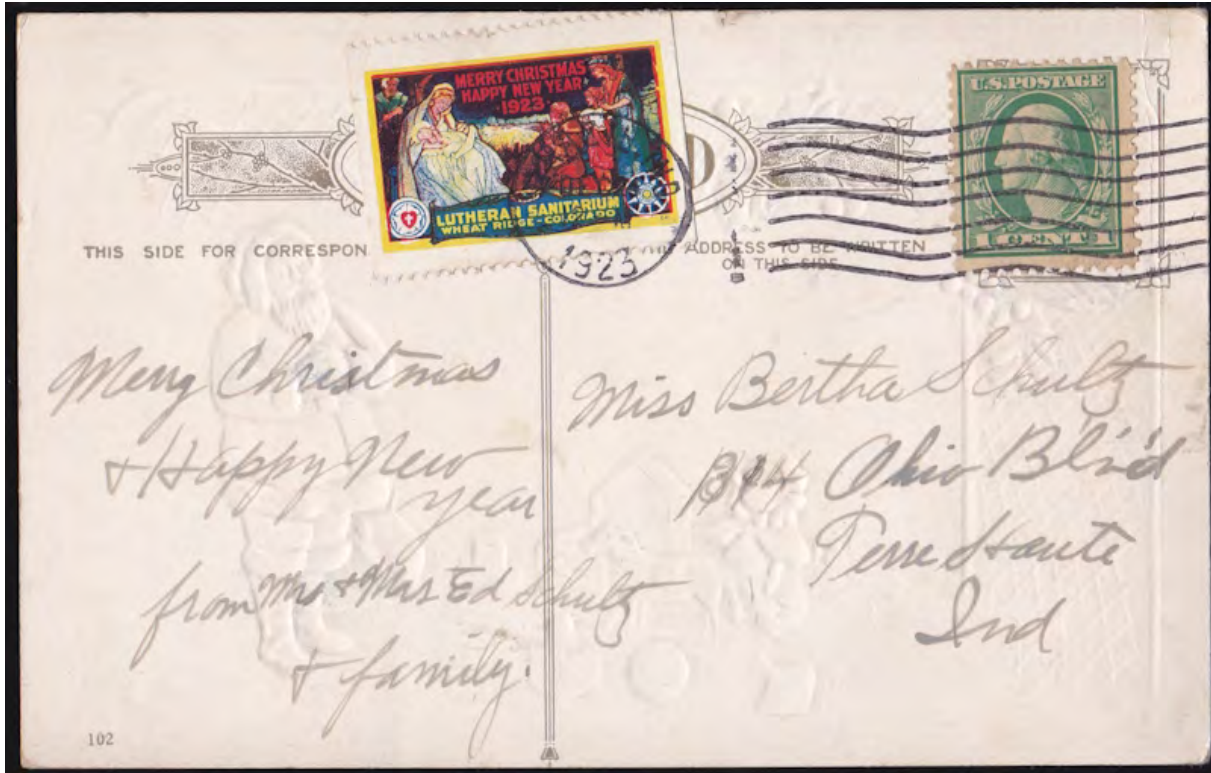 MERRY CHRISTMAS
HAPPY NEW YEAR
1923
LUTHERAN SANITARIUM
WHEAT RIDGE - COLORADO
U.S. POSTAGE
1 CENT 1
D
1923
THIS SIDE FOR CORRESPON
THE ADDRESS TO BE WRITTEN
ON THIS SIDE
Merry Christmas
& Happy New
year
from Mr & Mrs Ed Schultz
& family.
Miss Bertha Schultz
Ohio Blv'd
Terre Haute
Ind
102